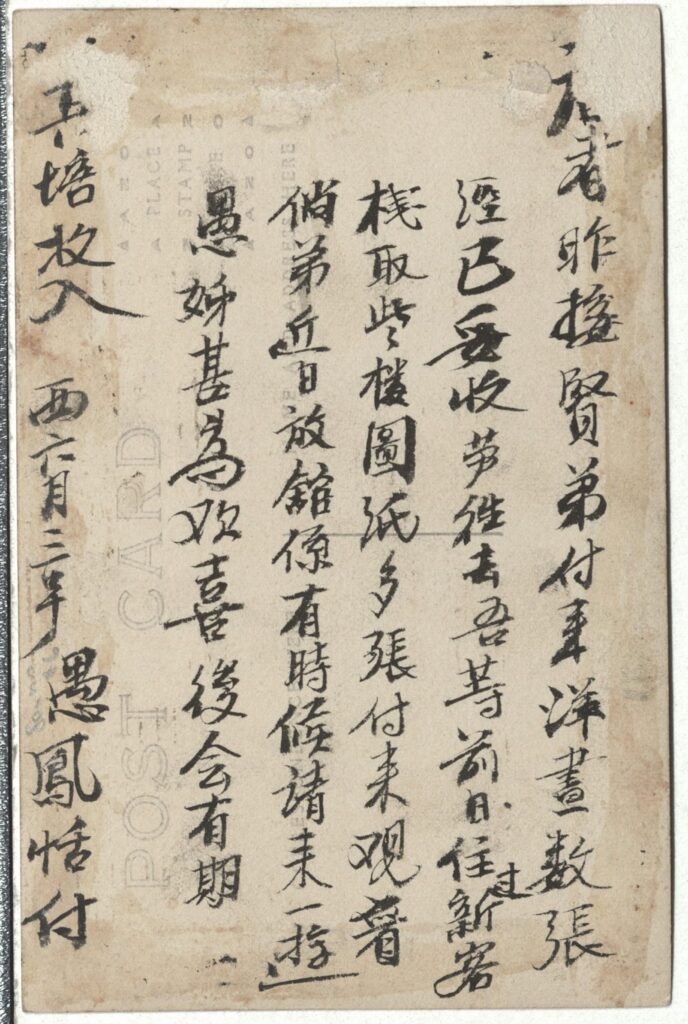 啓者昨接賢弟付来洋畫數張
經已妥收劳往去吾等前日住过新客
栈取些楼圖紙多張付来观看
倘弟近日放舘係有時候請来一遊
愚姊甚為欢喜後会有期
培枚入 西六月三 愚鳳恬付
POST CARD
PLACE
STAMP
HERE